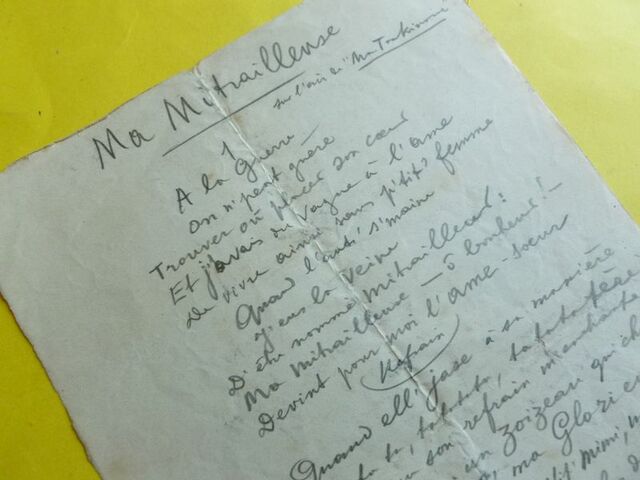 Ma Mitrailleuse
sur l'air de "Ma Tonkinoise
1
A la Guerre
on n' peut guère
Trouver où placer son cœur
Et j'avais du vague à l'âme
De vivre ainsi sans p'tit' femme
Quand l'aut' s'maine
J'eus la veine
D'être nommé Mitrailleur :
Ma Mitrailleuse — ô bonheur ! —
Devint pour moi l'âme-soeur
Refrain
Quand ell' jase à sa manière
ta ta, tatatata, tatatatère
son refrain m'enchante
un zoizeau qui ch
ma Glori
p'tit' Mimi,